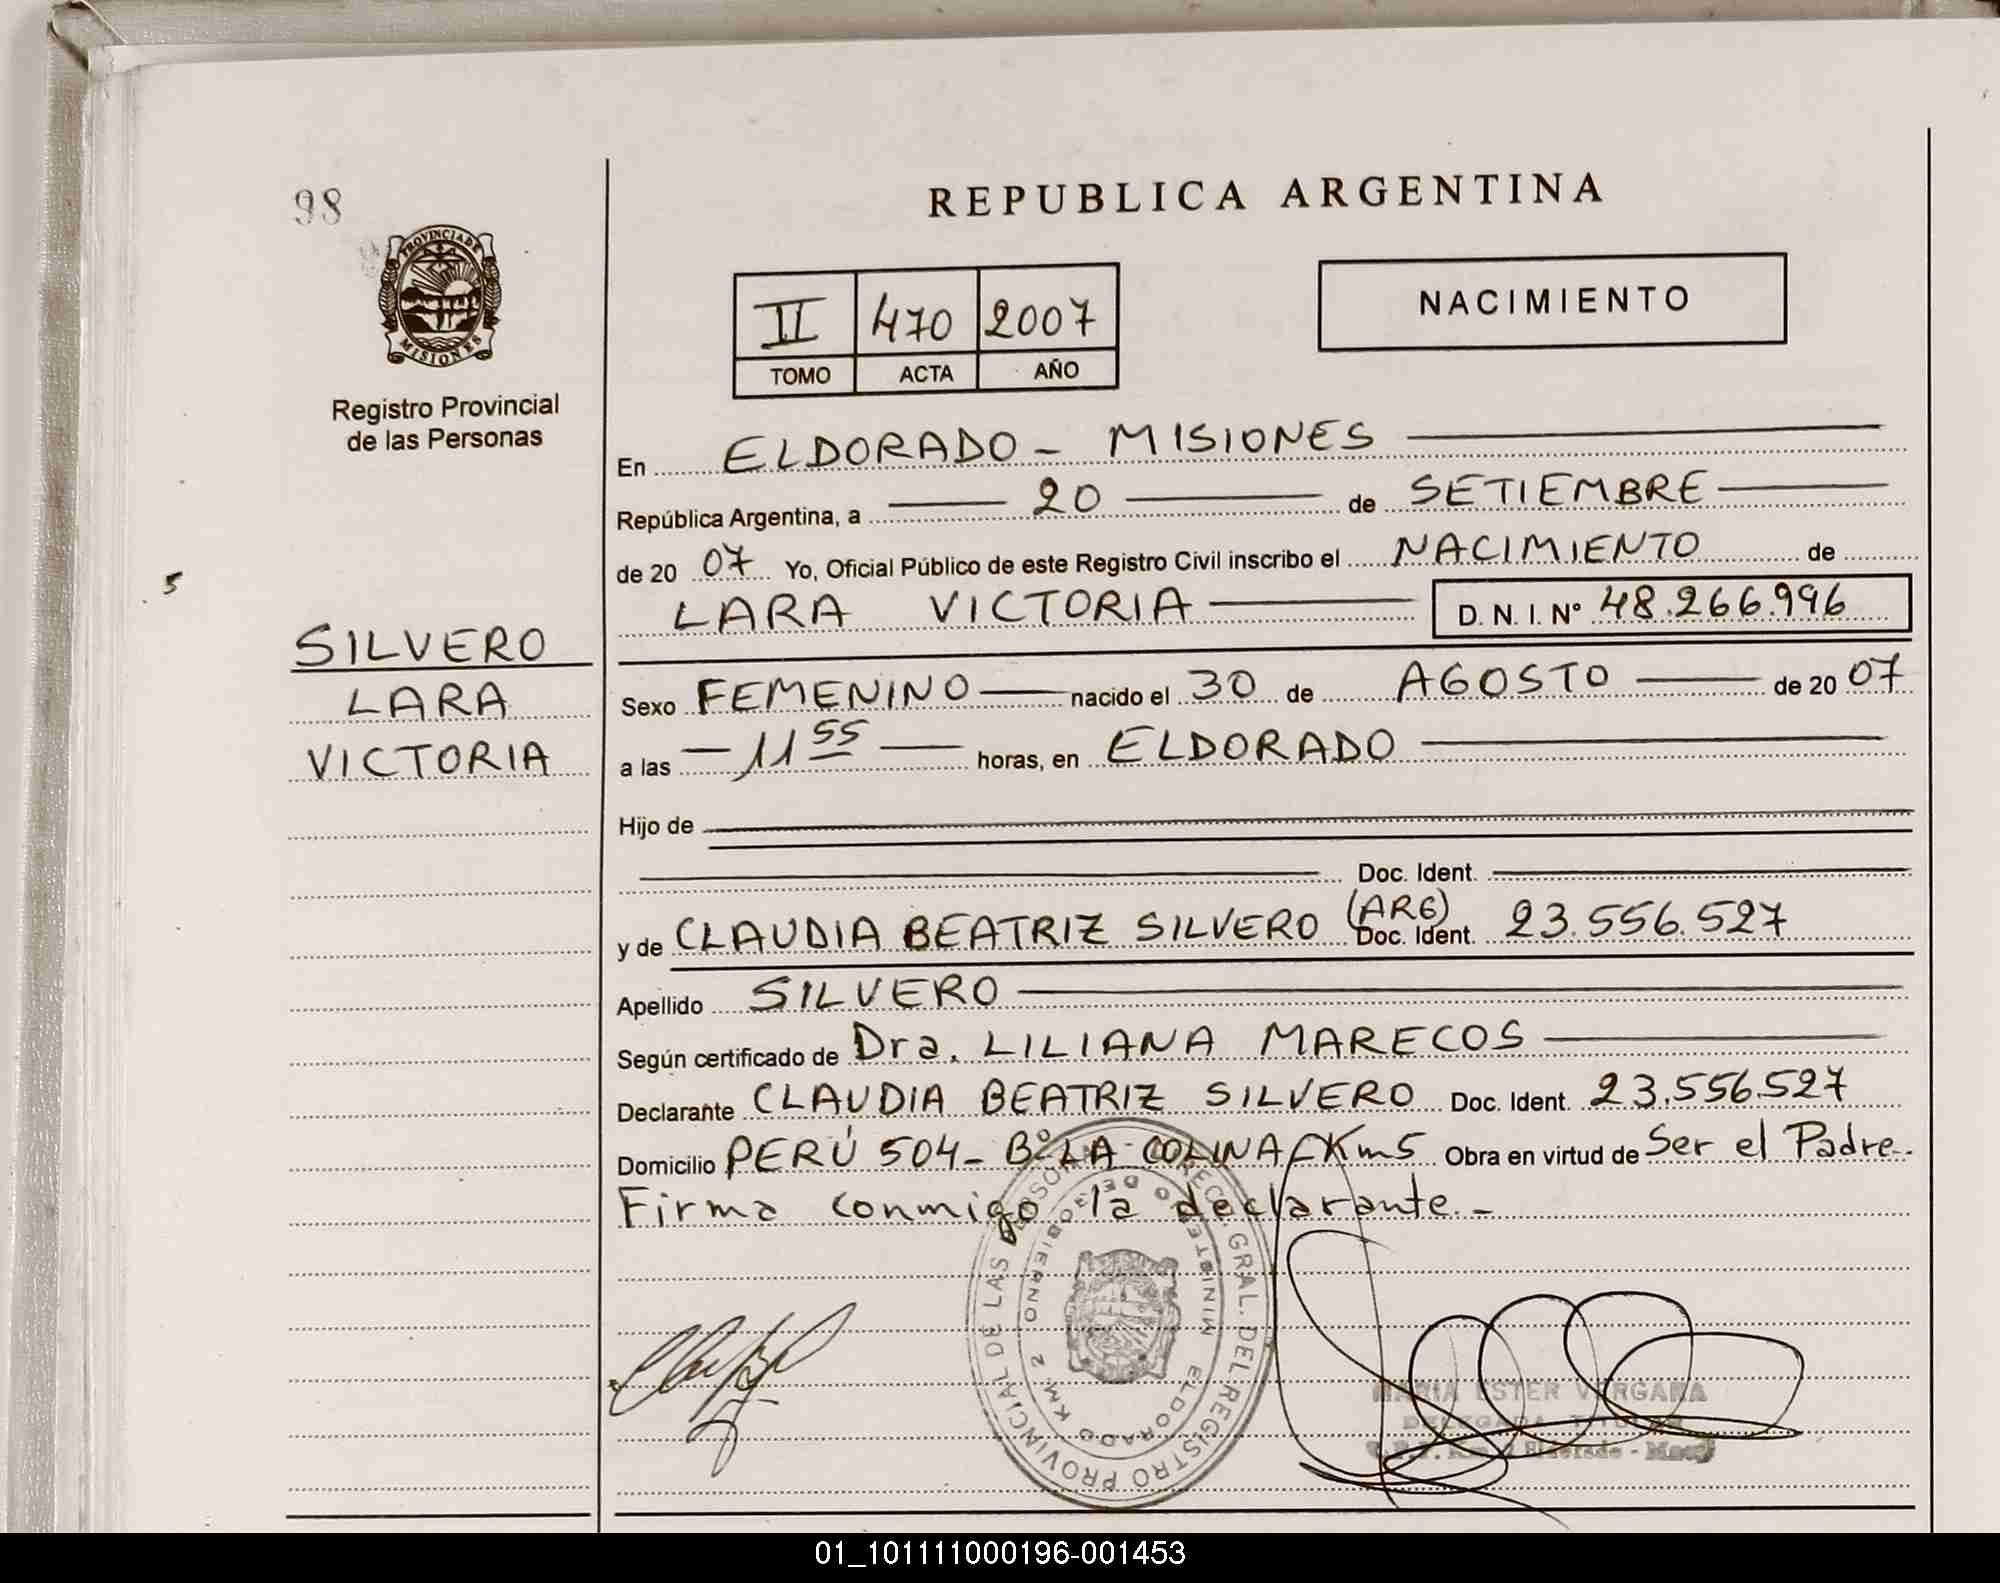 98
PROVINCIA DE
MISIONES
Registro Provincial
de las Personas
5
SILVERO
LARA
VICTORIA
REPUBLICA ARGENTINA
II 470 2007
TOMO ACTA AÑO
NACIMIENTO
En ELDORADO - MISIONES
República Argentina, a 20 de SETIEMBRE
de 20 07 Yo, Oficial Público de este Registro Civil inscribo el NACIMIENTO de
LARA VICTORIA D. N. I. Nº 48.266.996
Sexo FEMENINO nacido el 30 de AGOSTO de 20 07
a las 11 55 horas, en ELDORADO
Hijo de
Doc. Ident.
(ARG)
y de CLAUDIA BEATRIZ SILVERO Doc. Ident. 23.556.527
Apellido SILVERO
Según certificado de Dra. LILIANA MARECOS
Declarante CLAUDIA BEATRIZ SILVERO Doc. Ident. 23.556.527
Domicilio PERÚ 504 - Bº LA COLINA - Km5 Obra en virtud de Ser el Padre.
Firma conmigo la declarante. -
DIRECC. GRAL. DEL REGISTRO PROVINCIAL DE LAS PERSONAS
MINISTERIO DE GOBIERNO
ELDORADO KM. 2
MARIA ESTER VERGARA
DELEGADA TITULAR
Eldorado -
01_101111000196-001453